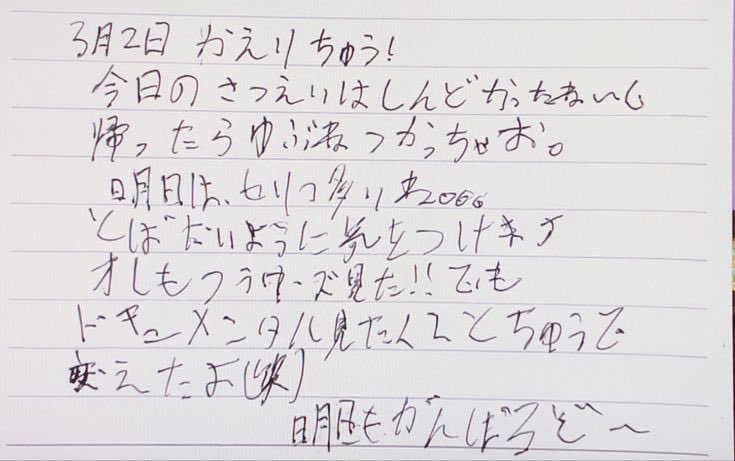 3月2日 かえりちゅう!
今日のさつえいはしんどかったねい
帰ったらゆぶねつかっちゃお。
明日は、セリフ多いね。。。
とばないように気をつけネヲ
オレもフラワーズ見た!! でも
ドキュメンタル見たくてとちゅうで
変えたよ(笑)
明日もがんばろぞ〜